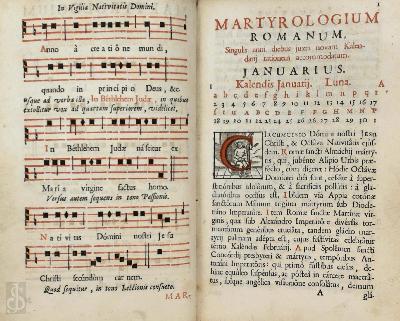 In Vigilia Nativitatis Domini.
Anno à creatione mundi,
quando in principio Deus, &c.
usque ad verba ista, In Bethlehem Judæ, in quibus
extollitur vox ad quartam superiorem, videlicet,
In Bethlehem Judæ nascitur ex
Maria virgine factus homo.
Versus autem sequens in tono Passionis.
Nativitas Dómini nostri Jesu
Christi secundum carnem.
Quod sequitur, in tono Lectionis consueto.
MAR-
1
MARTYROLOGIUM
ROMANUM,
Singulis anni diebus juxta novam Kalen-
darij rationem accommodatum.
JANUARIUS.
Kalendis Januarij. Luna.
a b c d e f g h i k l m n p q r s
2 3 4 5 6 7 8 9 10 11 12 13 14 15 16 17
t u A B C D E F G H M N P
18 19 20 21 22 23 24 25 26 27 28 29 30 1
CIrcumcisio Dómini nostri Jesu
Christi, & Octáva Nativitátis ejús-
dem. Romæ sancti Almáchij márty-
ris, qui, jubénte Alípio Urbis præ-
fécto, cùm díceret: Hódie Octávæ
Domínici diéi sunt, cessáte à super-
stitiónibus idolórum, & à sacrifíciis pollútis: à gla-
diatóribus occísus est. Ibídem via Appia coronæ
sanctórum Mílitum trigínta mártyrum sub Diocle-
tiáno Imperatóre. Item Romæ sanctæ Martínæ vír-
ginis, quæ sub Alexándro Imperatóre divérsis tor-
mentórum genéribus cruciáta, tandem gládio mar-
tyrij palmam adépta est, cujus festívitas celebrátur
tertio Kaléndas Februárij. A pud Spolétum sancti
Concórdij presbyteri & mártyris, tempóribus An-
toníni Imperatóris: qui primò fústibus cæsus, de-
hinc equúleo suspénsus, ac póstea in cárcere macerá-
tus, ibíque angélica visitatióne consolátus, demum
A
glá-